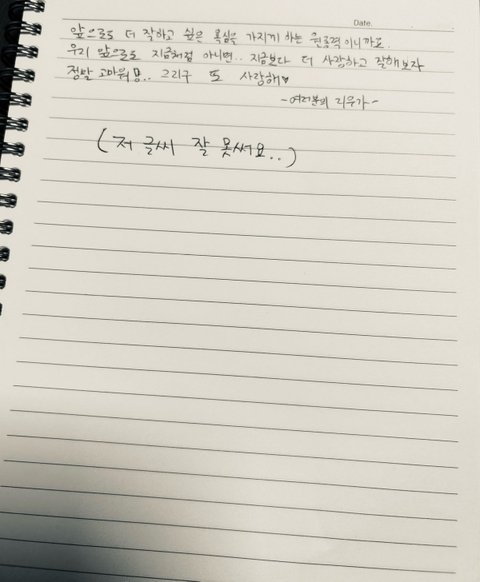 Date.
앞으로도 더 잘하고 싶은 욕심을 가지게 하는 원동력이니까요.
우리 앞으로도 지금처럼 아니면.. 지금보다 더 사랑하고 잘해보자
정말 고마워요.. 그리구 또 사랑해♥
-여러분의 리우가-
(저 글씨 잘 못써요..)